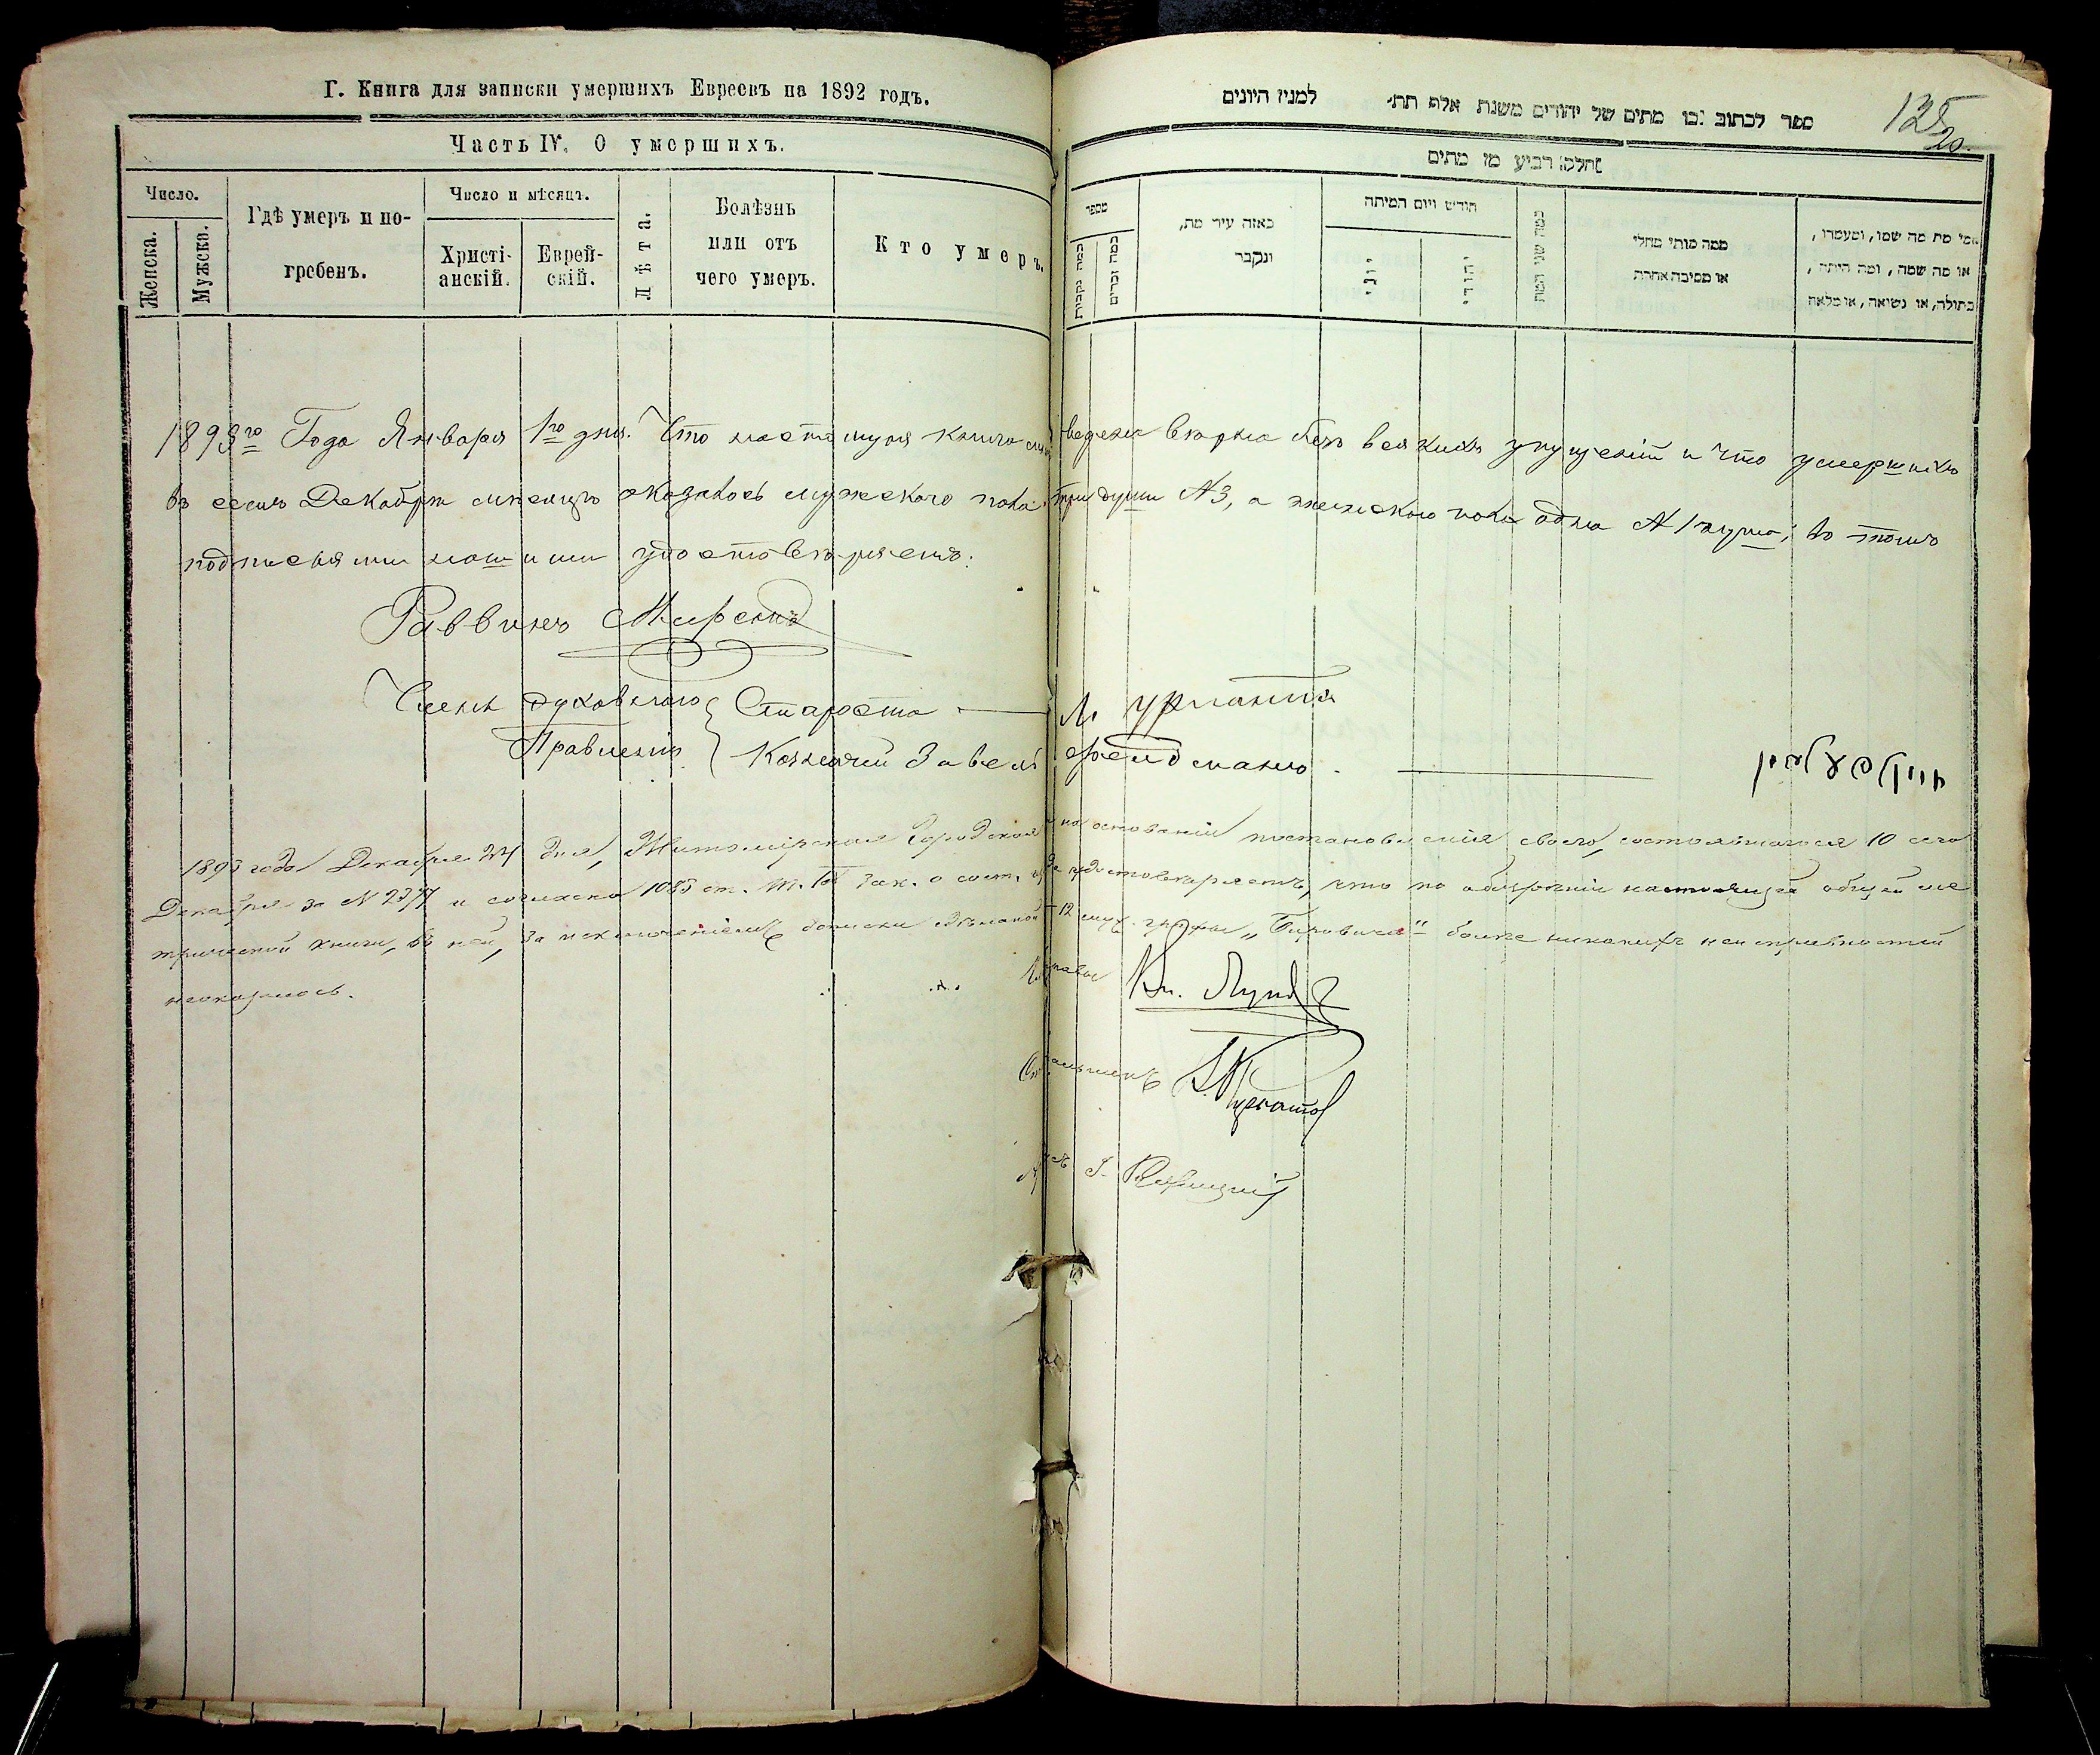 Г. Книга для записки умершихъ Евреевъ на 1892 годъ.
Часть IV. О умершихъ.
Число.
Женска.
Мужска.
Гдѣ умеръ и по-
гребенъ.
Число и мѣсяцъ.
Христі-
анскій.
Еврей-
скій.
Лѣта.
Болѣзнь
или отъ
чего умеръ.
Кто умеръ.
ספר לכתוב בו מתים של יהודים משנת אלף תת׳ למנין היונים
125
חלק רביע מן מתים
מספר
כמה נקבות
כמה זכרים
באזה עיר מת,
ונקבר
חודש ויום המיתה
יוני
יהודי
כמה שני חיות
ממה מותי מחלי
או מסיבה אחרת
מי מת מה שמו, ומעמדו,
או מה שמה, ומה היתה,
בתולה, או נשואה, או מלאה
1893го Года Января 1го дня. Что настоящая книга ведена вѣрно безъ всякихъ упущеній и что умершихъ
въ семъ Декабрѣ мѣсяцѣ оказалось мужского пола три души № 3, а женскаго пола одна № 1 душа, въ томъ
подписями нашими удостовѣряемъ:
Раввинъ Мирскій
Члены духовнаго Староста — Л. Урланта
Правленія Казначей Завель Фельдманъ. —
1893 года Декабря 24 дня, Житомірская Городская на основаніи постановленія своего, состоявшагося 10 сего
Декабря за № 2377 и согласно 1085 ст. т. IX Зак. о сост. удостовѣряетъ, что по обозрѣніи настоящей общей ме
трической книги, въ ней, за исключеніемъ дописки 12 муж. графы „Бировича" болѣе никакихъ неисправностей
неоказалось.